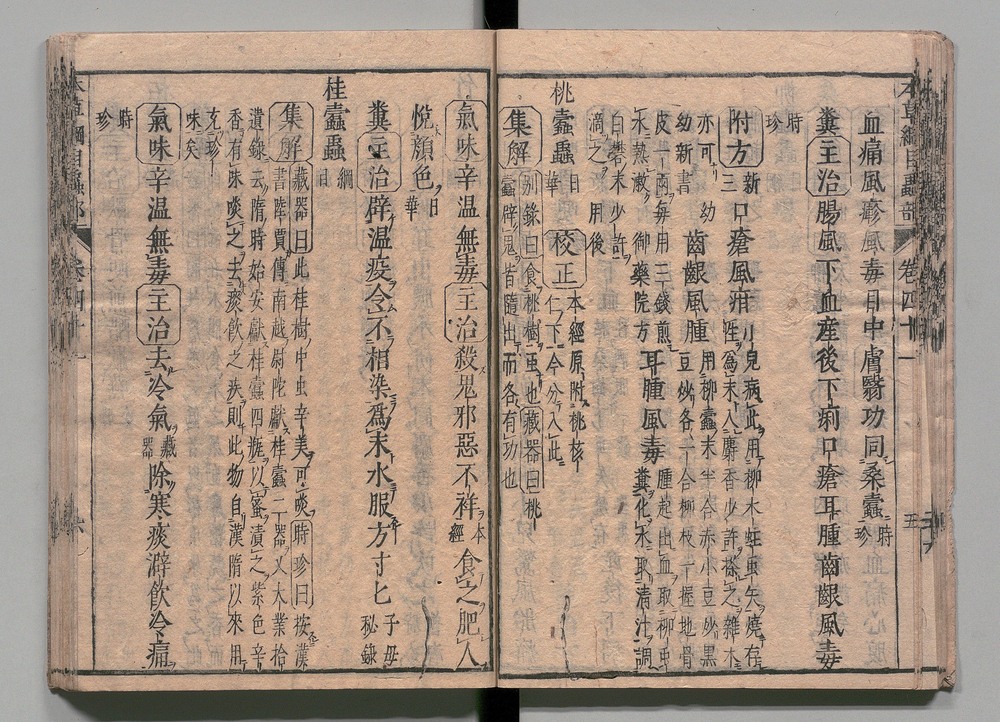 本草綱目蟲部 卷四十一
血痛風疹風毒目中膚翳功同桑蠹 時珍
糞 主治 腸風下血産後下痢口瘡耳腫齒齦風毒
時珍
附方 新三 口瘡風疳 小兒病此用柳木蛀虫矢燒存
性爲末入麝香少許搽之雜木
亦可 幼
幼新書 齒齦風腫 用柳蠹末半合赤小豆炒黑
豆炒各一合柳枝一握地骨
皮一兩每用三錢煎
水熱漱 御藥院方 耳腫風毒 腫起出血取柳虫
糞化水取清汁調
白礬末少許
滴之 用後
桃蠹蟲 日華 校正 本經原附桃核
仁下今分入此
集解 别錄曰食桃樹虫也藏器曰桃
蠹辟鬼皆隨出而各有功也
氣味 辛温無毒 主治 殺鬼邪惡不祥 本經 食之肥人
悅顔色 日華
糞 主治 辟温疫令不相染爲末水服方寸匕 子母秘錄
桂蠹蟲 綱目
集解 藏器曰此桂樹中虫辛美可啖時珍曰按漢
書陸賈傳南越尉陀獻桂蠹二器又大業拾
遺錄云隋時始安獻桂蠹四瓶以蜜漬之紫色辛
香有味啖之去痰飲之疾則此物自漢隋以來用
充珍
味矣
氣味 辛温無毒 主治 去冷氣 藏器 除寒痰澼飲冷痛
時珍